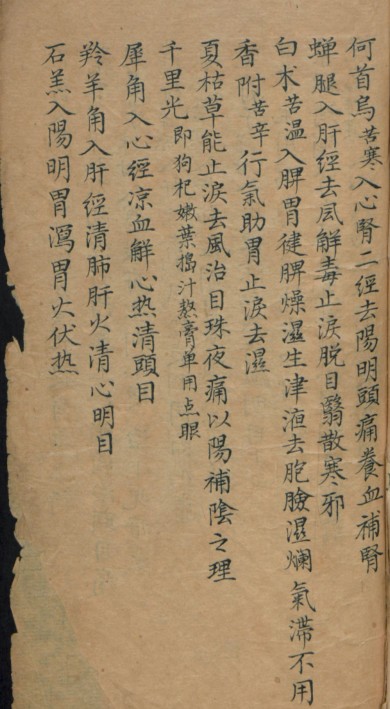 何首烏苦寒入心腎二經去陽明頭痛養血補腎
蝉腿入肝經去风解毒止淚脱目翳散寒邪
白术苦温入脾胃健脾燥濕生津液去胞臉濕爛氣滯不用
香附苦辛行氣助胃止淚去濕
夏枯草能止淚去風治目珠夜痛以陽補陰之理
千里光即狗杞嫩葉搗汁熬膏单用点眼
犀角入心經凉血解心热清頭目
羚羊角入肝經清肺肝火清心明目
石羔入陽明胃瀉胃火伏热